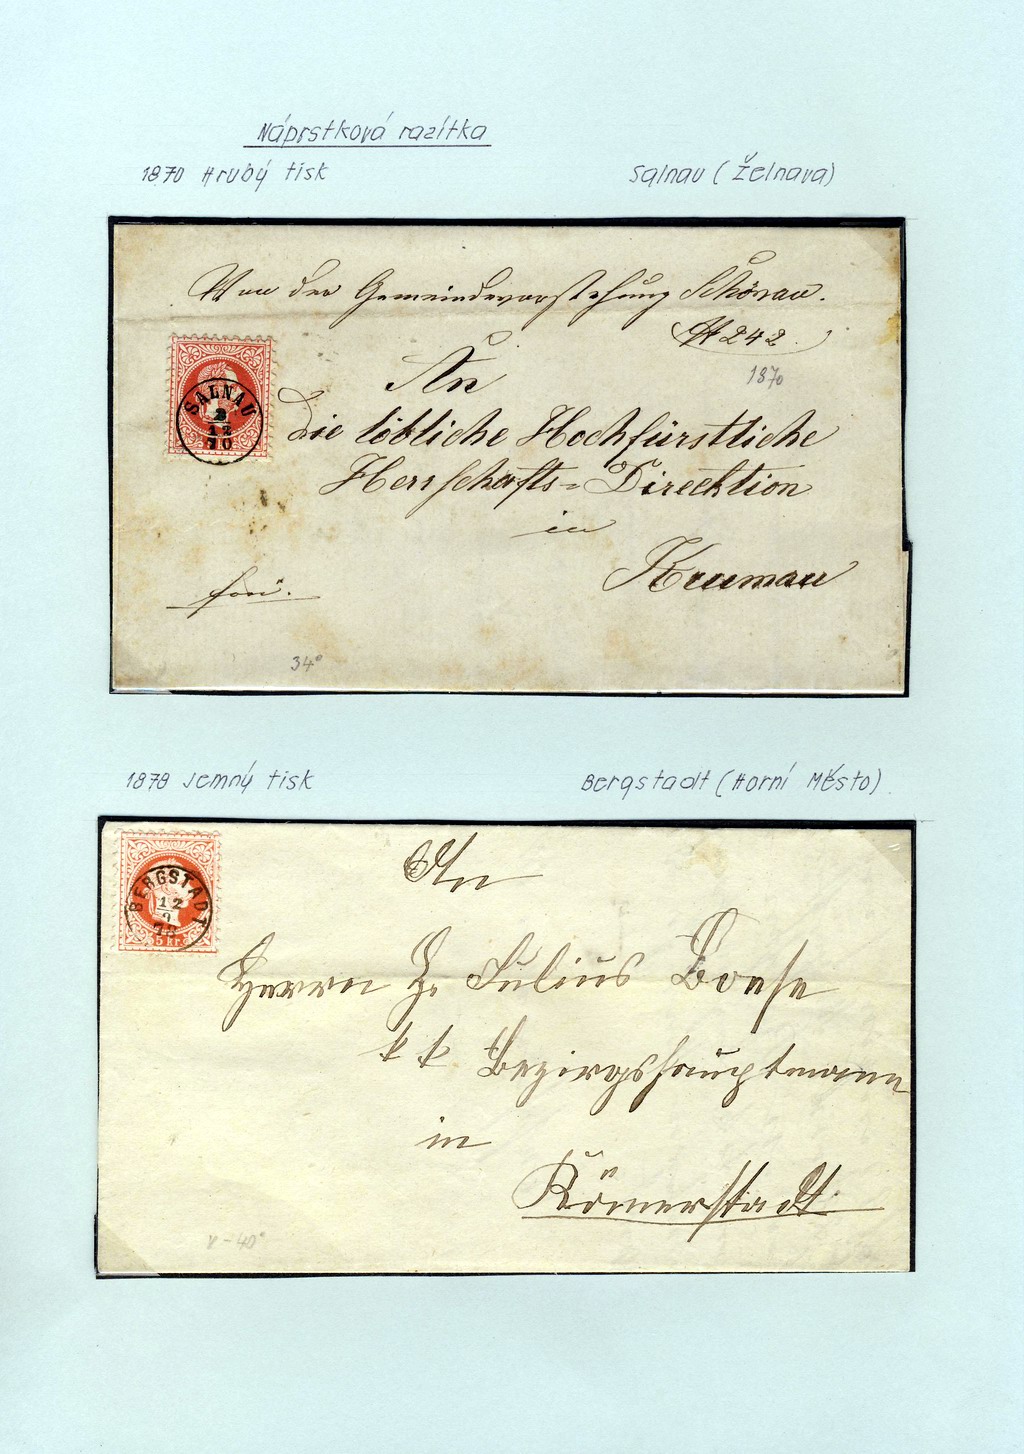 Náprstková razítka
1870 Hrubý tisk
Salnau (Želnava)
Von der Gemeindevorstehung Schönau.
№ 242.
1870
An
Die löbliche Hochfürstliche
Herrschafts=Direcktion
in
Krumau
SALNAU
2
12
70
34°
1878 Jemný tisk
Bergstadt (Horní Město)
BERGSTADT
12
9
78
5 kr.
An
Herrn H. Julius Boese
k k Bezirgshauptmann
in
Römerstadt